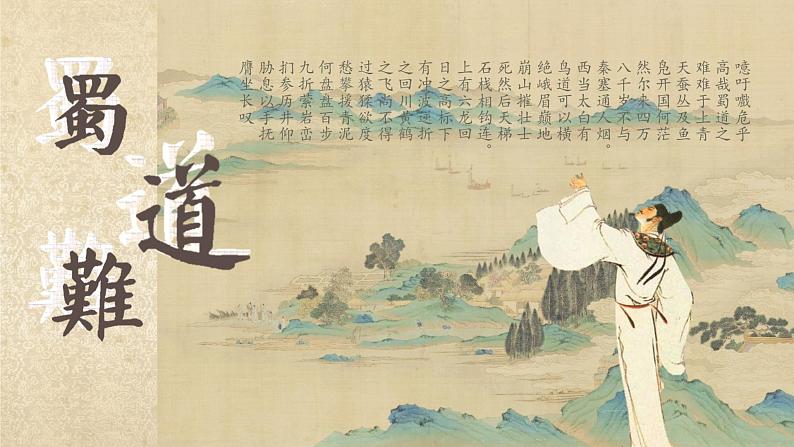 蜀
道
難
噫吁嚱危乎
高哉蜀道之
难难于上青
天蚕丛及鱼
凫开国何茫
然尔来四万
八千岁不与
秦塞通人烟。
西当太白有
鸟道可以横
绝峨眉巅地
崩山摧壮士
死然后天梯
石栈相钩连。
上有六龙回
日之高标下
有冲波逆折
之回川黄鹤
之飞尚不得
过猿猱欲度
愁攀援青泥
何盘盘百步
九折萦岩峦
扪参历井仰
胁息以手抚
膺坐长叹